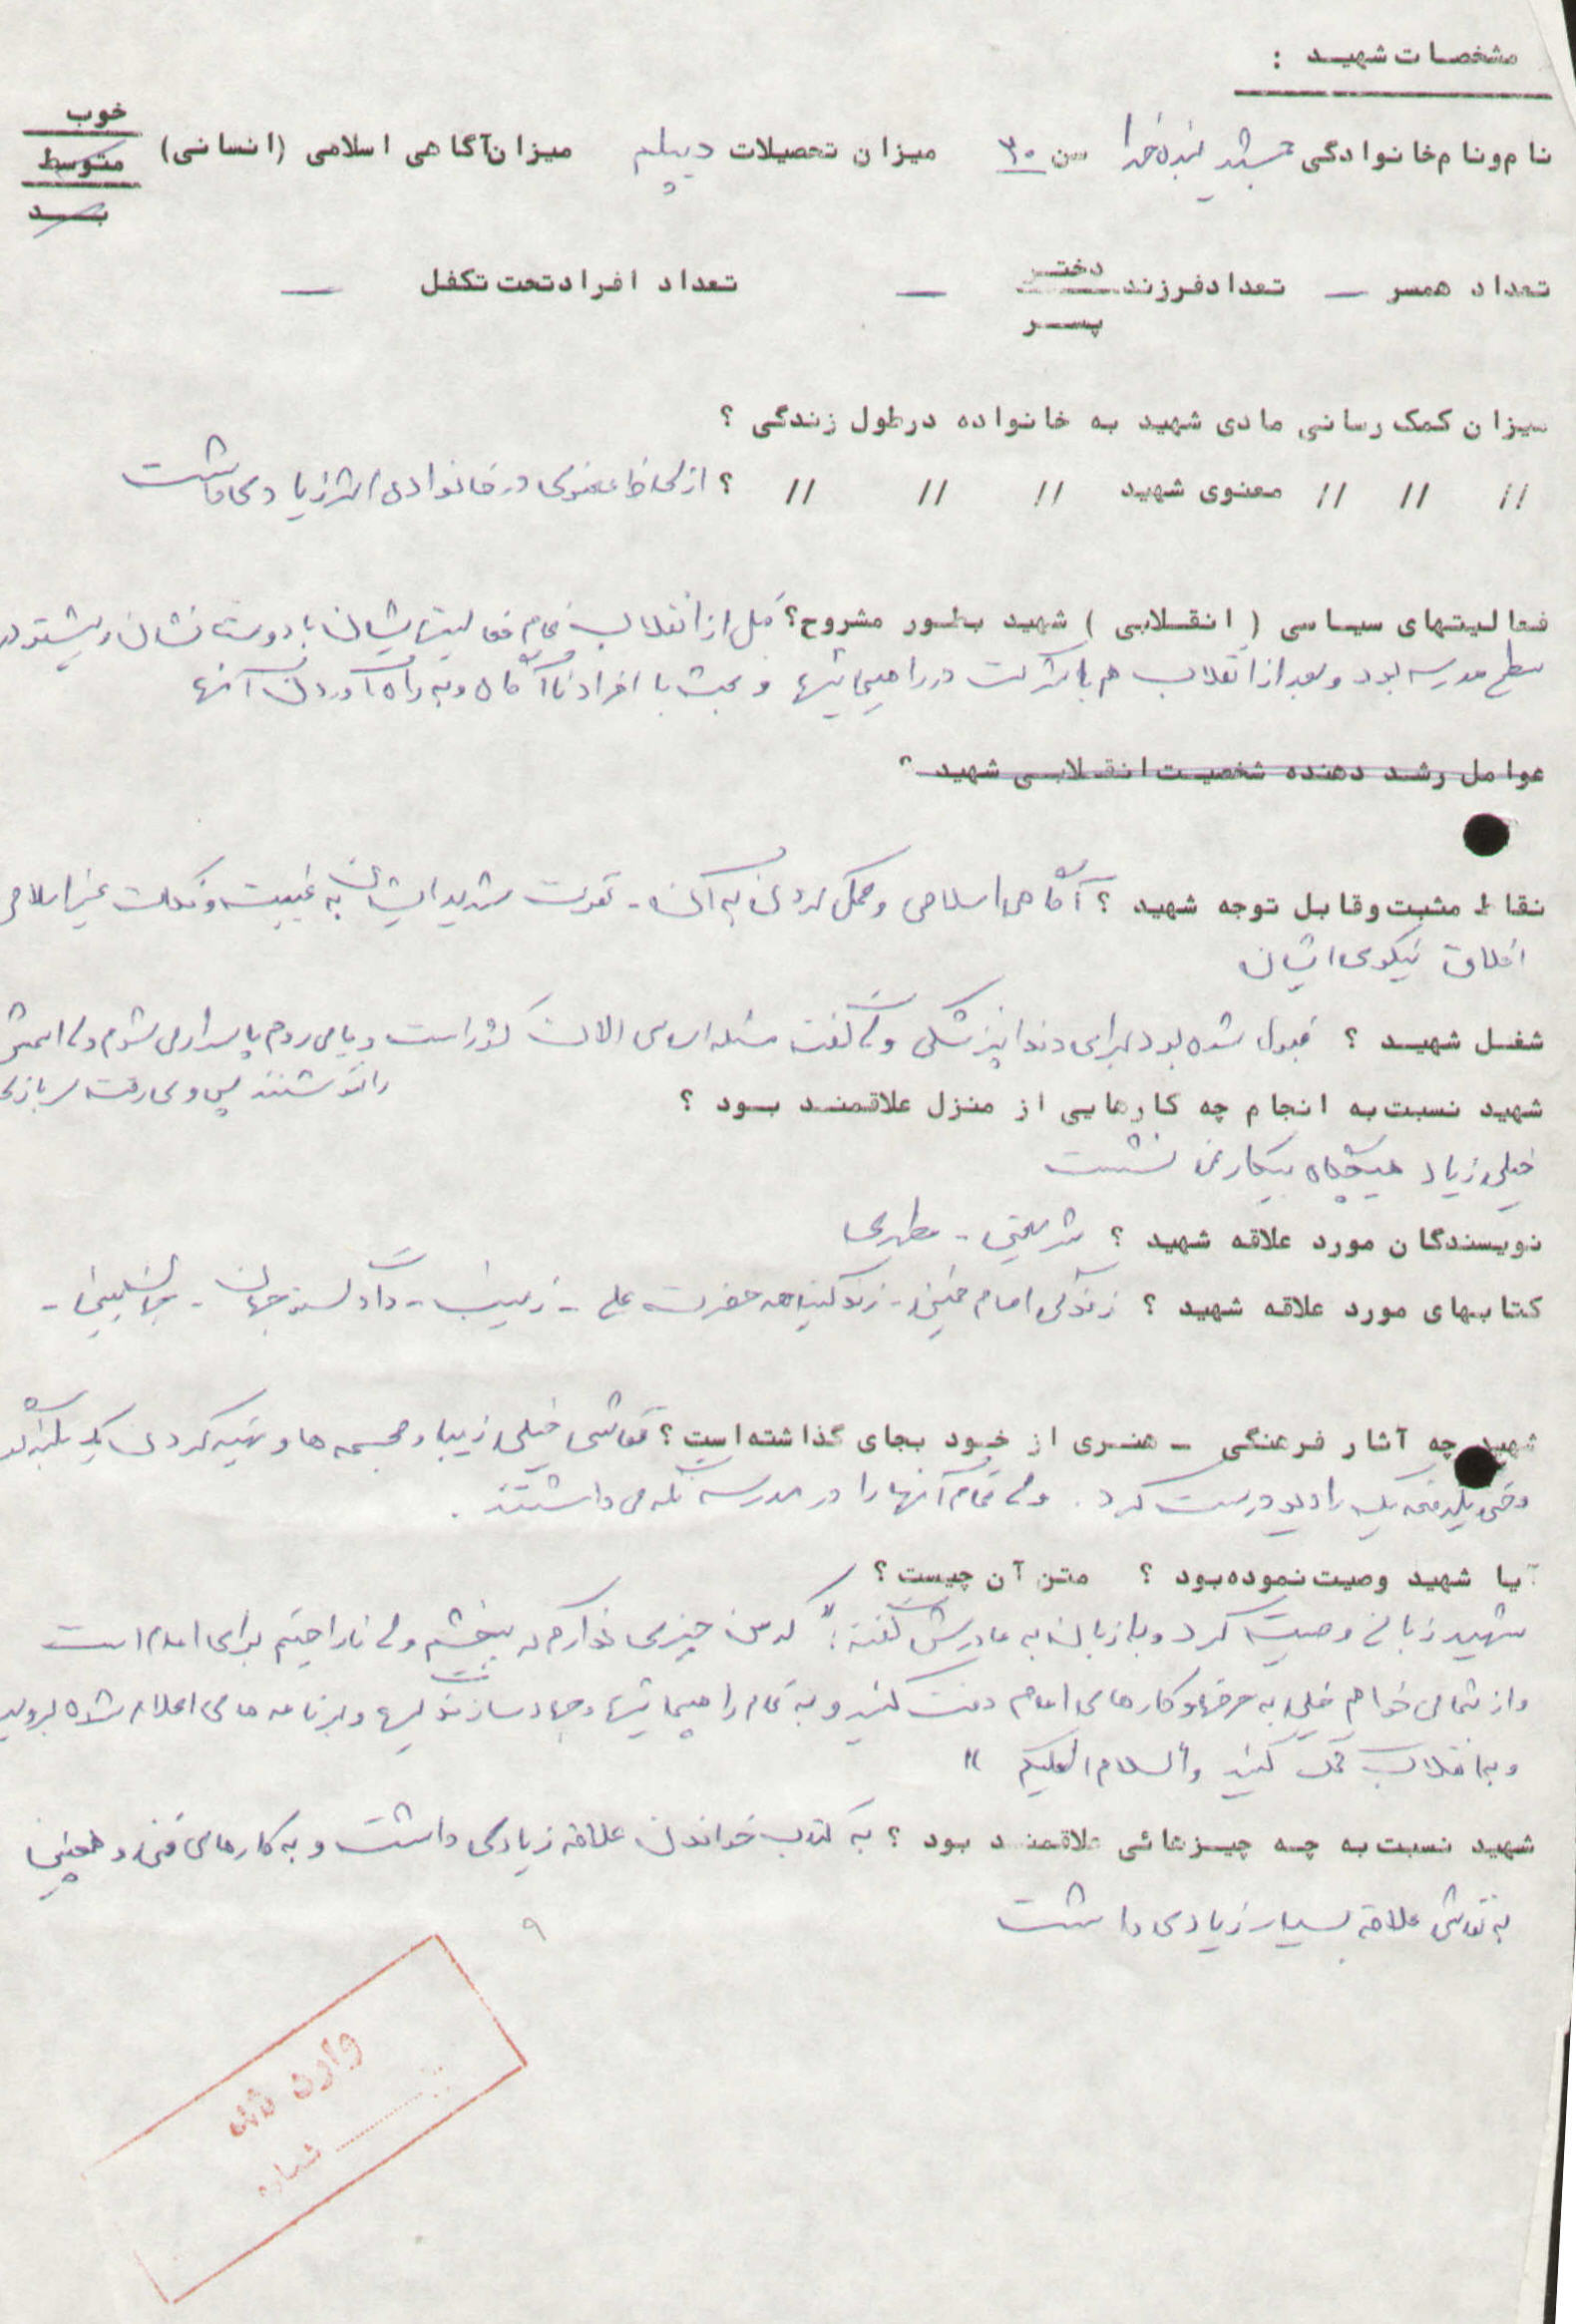 مشخصات شهید :
نام‌ونام‌خانوادگی جمشید بنده‌خدا سن ۳۰ میزان تحصیلات دیپلم میزان‌آگاهی اسلامی (انسانی) خوب
متوسط
بد
تعداد همسر — تعدادفرزند دختر — تعداد افرادتحت‌تکفل —
پسر
میزان کمک رسانی مادی شهید به خانواده درطول زندگی ؟
// // // معنوی شهید // // // ؟ از لحاظ معنوی در خانواده اثر زیادی داشت
فعالیتهای سیاسی ( انقلابی ) شهید بطور مشروح؟ قبل از انقلاب تمام فعالیتهایشان با دوستانشان و بیشتر در
سطح مدرسه بود و بعد از انقلاب هم با شرکت در راهپیمائیها و بحث با افراد ناآگاه و به راه آوردن آنها
عوامل رشد دهنده شخصیت انقلابی شهید ؟
نقاط مثبت وقابل توجه شهید ؟ آگاهی اسلامی و عمل کردن به آن - نفرت شدید ایشان به غیبت و نکات غیر اسلامی
اخلاق نیکوی ایشان
شغل شهید ؟ قبول شده بود برای دندانپزشکی ولی گفت مسئله اساسی الان کشور است و یا می‌روم پاسدار می‌شوم ولی اسمش
را ننوشتند پس وی رفت سربازی
شهید نسبت به انجام چه کارهایی از منزل علاقمند بود ؟
خیلی زیاد هیچگاه بیکار نمی نشست
نویسندگان مورد علاقه شهید ؟ شریعتی - مطهری
کتابهای مورد علاقه شهید ؟ زندگی امام خمینی - زندگینامه حضرت علی - زینب - دادگستر جهان -
شهید چه آثار فرهنگی - هنری از خود بجای گذاشته‌است ؟ نقاشی خیلی زیبا و مجسمه ها و تهیه کردن یک بلندگو
وحتی یکدفعه یک رادیو درست کرد . ولی تمام آنها را در مدرسه نگه می داشتند .
آیا شهید وصیت نموده‌بود ؟ متن آن چیست ؟
شهید زبانی وصیت کرد و با زبان به مادرش گفته : " که من چیزی ندارم که ببخشم ولی ناراحتیم برای امام است
واز شما می خواهم خیلی به حرفها و کارهای امام دقت کنید و به تمام راهپیمائیها و جهاد سازندگیها و برنامه های اعلام شده بروید
و به انقلاب کمک کنید والسلام العلیکم "
شهید نسبت به چه چیزهائی علاقمند بود ؟ به کتاب خواندن علاقه زیادی داشت و به کارهای فنی و همچنین
به نقاشی علاقه بسیار زیادی داشت
۹
وارد شد
شماره